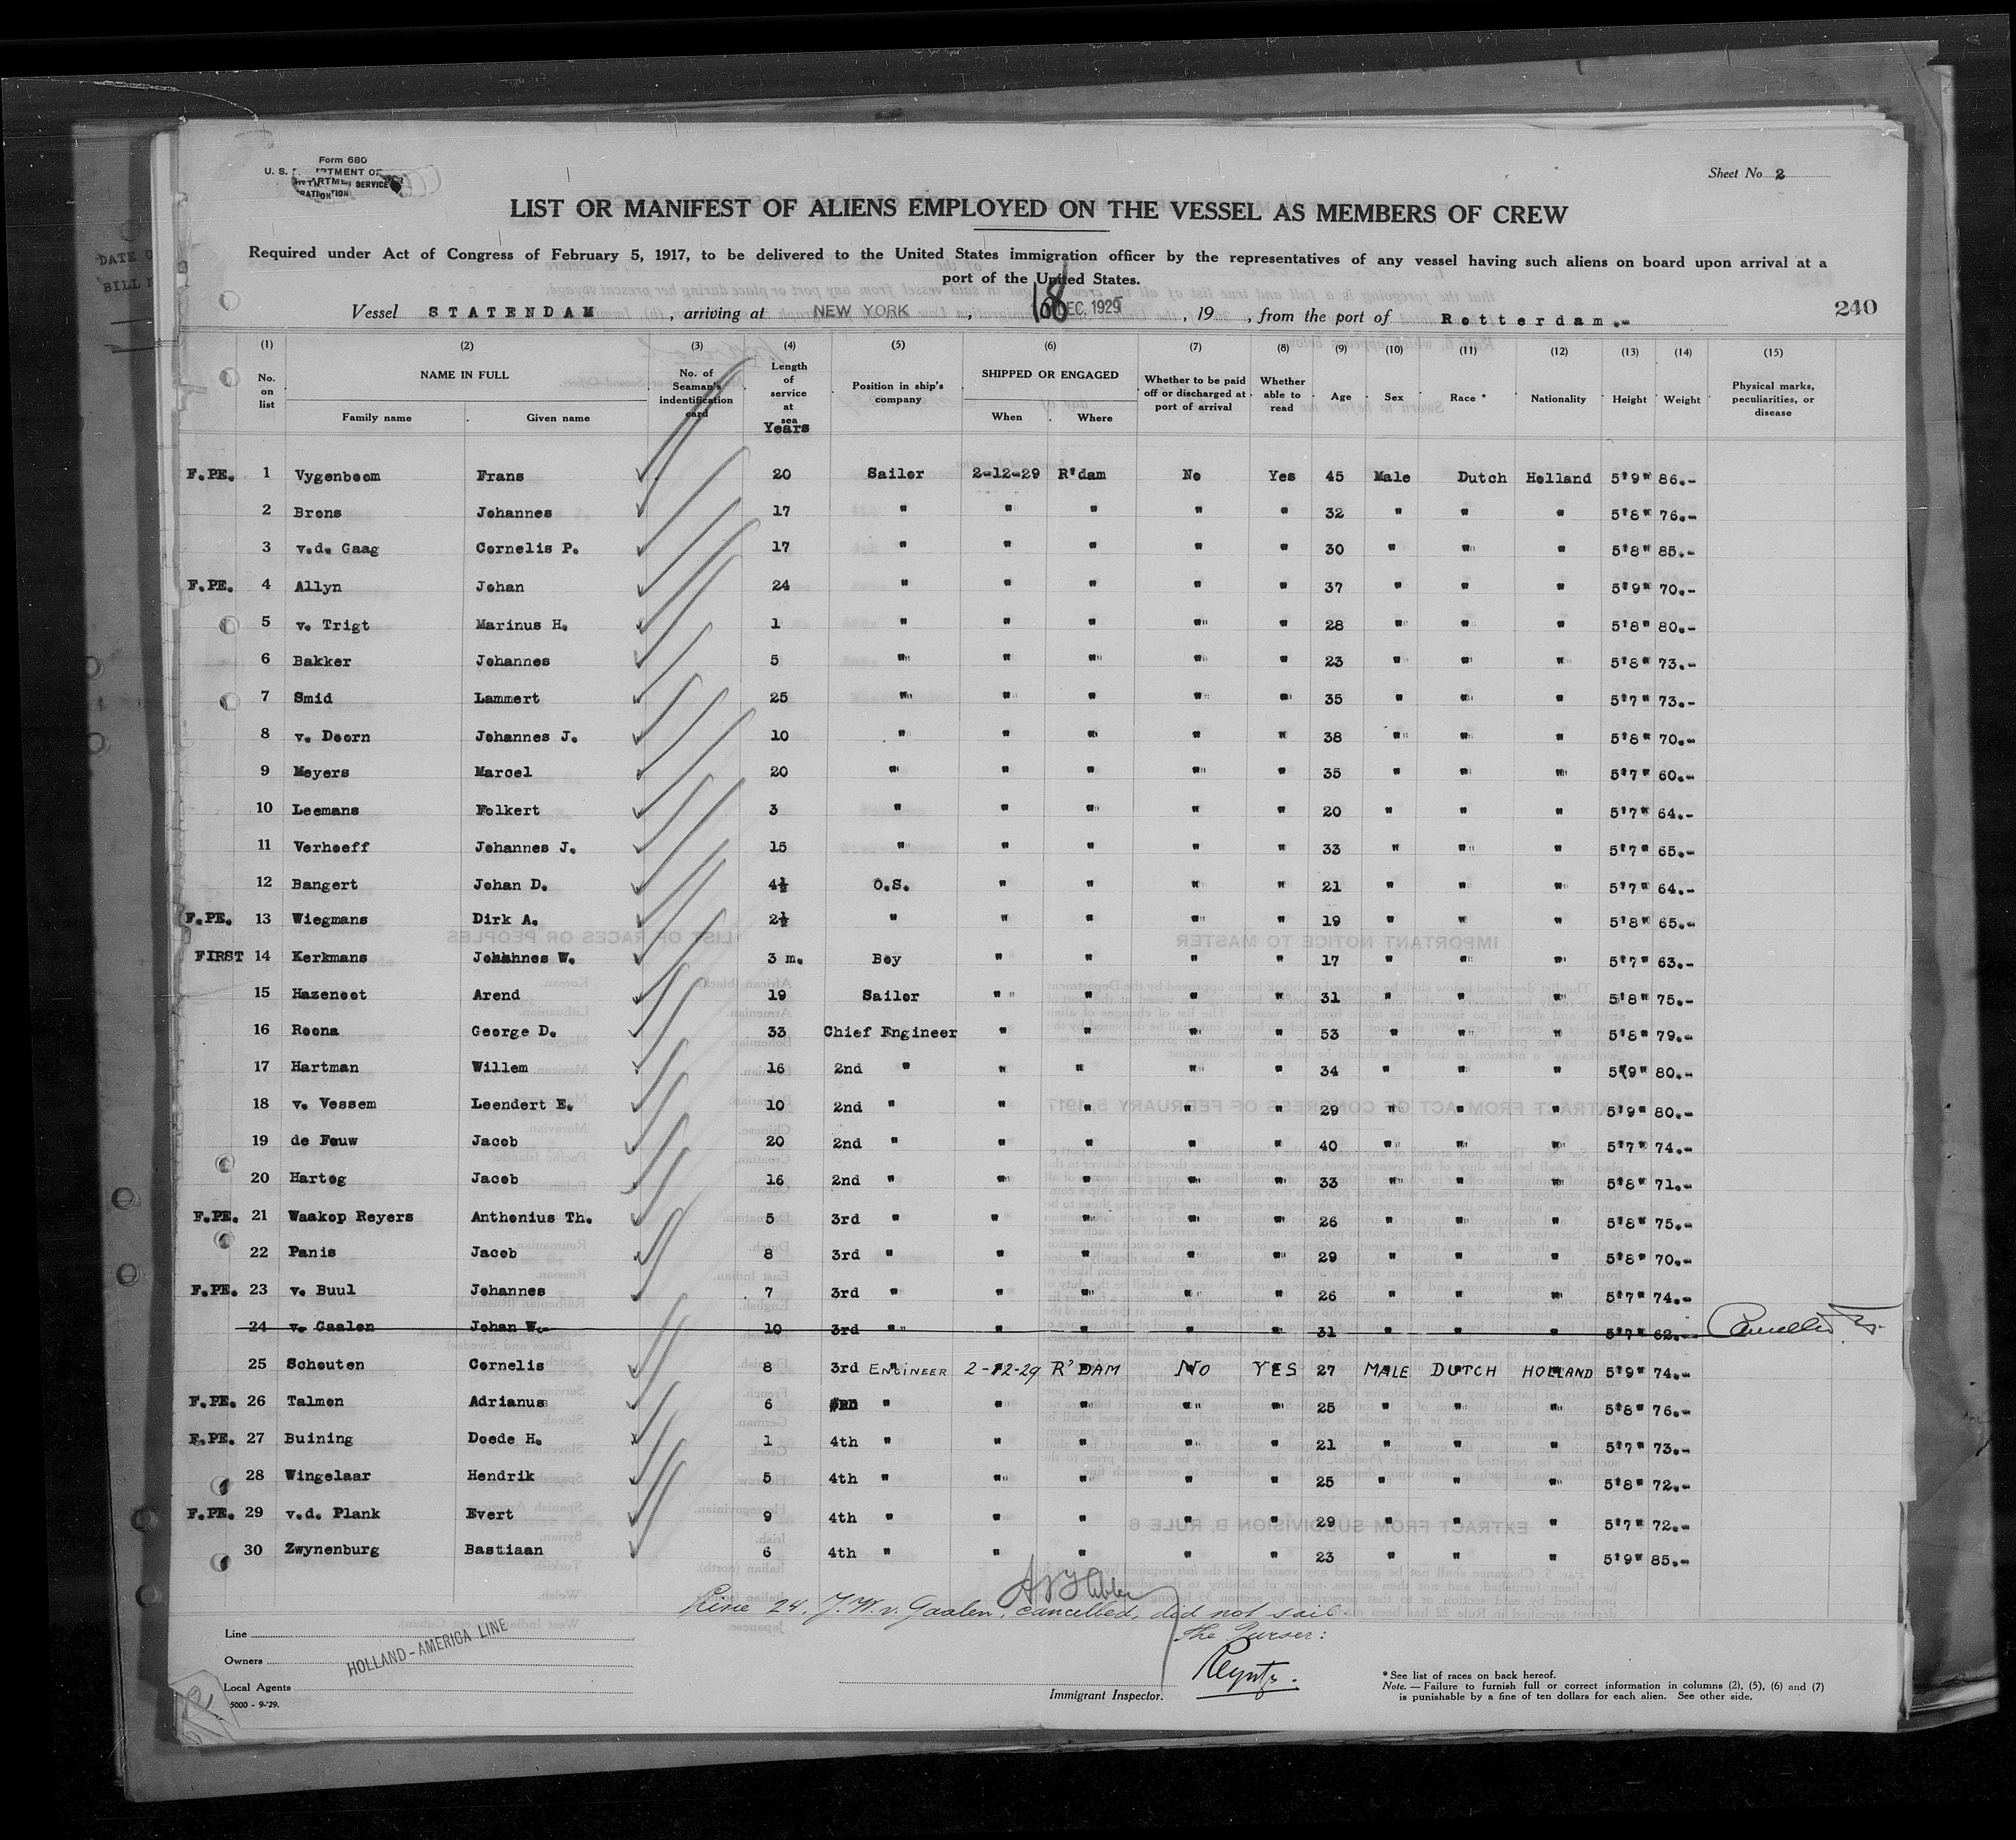 Form 680
U. S.
SERVICE
Sheet No 2
LIST OR MANIFEST OF ALIENS EMPLOYED ON THE VESSEL AS MEMBERS OF CREW
Required under Act of Congress of February 5, 1917, to be delivered to the United States immigration officer by the representatives of any vessel having such aliens on board upon arrival at a
port of the United States.
Vessel STATENDAM , arriving at NEW YORK , 18 DEC. 1929 , 19 , from the port of Rotterdam.-
240
(1) (2) (3) (4) (5) (6) (7) (8) (9) (10) (11) (12) (13) (14) (15)
No. on list NAME IN FULL Family name Given name No. of Seaman's indentification card Length of service at sea Years Position in ship's company SHIPPED OR ENGAGED When Where Whether to be paid off or discharged at port of arrival Whether able to read Age Sex Race * Nationality Height Weight Physical marks, peculiarities, or disease
F.PE. 1 Vygenboom Frans 20 Sailor 2-12-29 R'dam No Yes 45 Male Dutch Holland 5'9" 86.-
2 Brons Johannes 17 " " " " " 32 " " " 5'8" 76.-
3 v.d. Gaag Cornelis P. 17 " " " " " 30 " " " 5'8" 85.-
F.PE. 4 Allyn Johan 24 " " " " " 37 " " " 5'9" 70.-
5 v. Trigt Marinus H. 1 " " " " " 28 " " " 5'8" 80.-
6 Bakker Johannes 5 " " " " " 23 " " " 5'8" 73.-
7 Smid Lammert 25 " " " " " 35 " " " 5'7" 73.-
8 v. Doorn Johannes J. 10 " " " " " 38 " " " 5'8" 70.-
9 Meyers Marcel 20 " " " " " 35 " " " 5'7" 60.-
10 Leemans Folkert 3 " " " " " 20 " " " 5'7" 64.-
11 Verhoeff Johannes J. 15 " " " " " 33 " " " 5'7" 65.-
12 Bangert Johan D. 4½ O.S. " " " " 21 " " " 5'7" 64.-
F.PE. 13 Wiegmans Dirk A. 2½ " " " " " 19 " " " 5'8" 65.-
FIRST 14 Kerkmans Johannes W. 3 m. Boy " " " " 17 " " " 5'7" 63.-
15 Hazenoot Arend 19 Sailor " " " " 31 " " " 5'8" 75.-
16 Roona George D. 33 Chief Engineer " " " " 53 " " " 5'8" 79.-
17 Hartman Willem 16 2nd " " " " " 34 " " " 5'9" 80.-
18 v. Vessem Leendert E. 10 2nd " " " " " 29 " " " 5'9" 80.-
19 de Fouw Jacob 20 2nd " " " " " 40 " " " 5'7" 74.-
20 Hartog Jacob 16 2nd " " " " " 33 " " " 5'8" 71.-
F.PE. 21 Waakop Reyers Anthonius Th. 5 3rd " " " " " 26 " " " 5'8" 75.-
22 Panis Jacob 8 3rd " " " " " 29 " " " 5'8" 70.-
F.PE. 23 v. Buul Johannes 7 3rd " " " " " 26 " " " 5'7" 74.-
24 v. Gaalen Johan W. 10 3rd " " " " " 31 " " " 5'7" 62.- Cancelled
25 Schouten Cornelis 8 3rd ENGINEER 2-12-29 R'DAM NO YES 27 MALE DUTCH HOLLAND 5'9" 74.-
F.PE. 26 Talmon Adrianus 6 " " " " " 25 " " " 5'8" 76.-
F.PE. 27 Buining Doede H. 1 4th " " " " " 21 " " " 5'7" 73.-
28 Wingelaar Hendrik 5 4th " " " " " 25 " " " 5'8" 72.-
F.PE. 29 v.d. Plank Evert 9 4th " " " " " 29 " " " 5'7" 72.-
30 Zwynenburg Bastiaan 6 4th " " " " " 23 " " " 5'9" 85.-
Line 24. J.W. v. Gaalen, cancelled, did not sail.
The Purser:
Line
HOLLAND-AMERICA LINE
Owners
Local Agents
5000 - 9-'29.
Immigrant Inspector.
* See list of races on back hereof.
Note. — Failure to furnish full or correct information in columns (2), (5), (6) and (7)
is punishable by a fine of ten dollars for each alien. See other side.